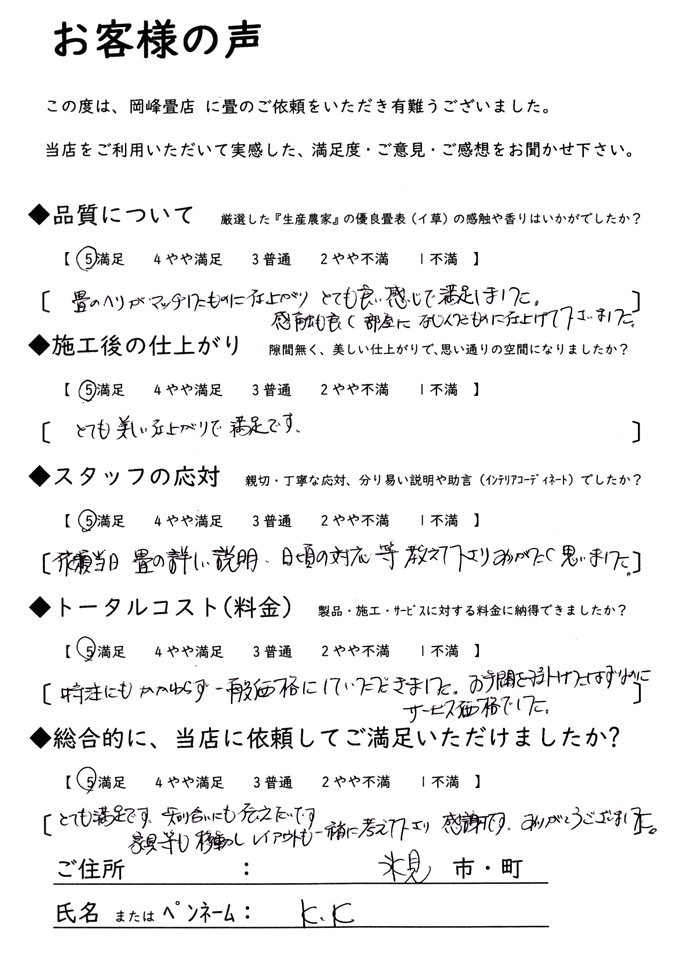 お客様の声
この度は、岡峰畳店 に畳のご依頼をいただき有難うございました。
当店をご利用いただいて実感した、満足度・ご意見・ご感想をお聞かせ下さい。
◆品質について 厳選した『生産農家』の優良畳表（イ草）の感触や香りはいかがでしたか？
【 5満足 4やや満足 3普通 2やや不満 1不満 】
[ 畳のヘリがマッチしたものに仕上がり とても良い感じで満足しました。 ]
感触も良く 部屋に なじんだものに仕上げて下さいました。
◆施工後の仕上がり 隙間無く、美しい仕上がりで、思い通りの空間になりましたか？
【 5満足 4やや満足 3普通 2やや不満 1不満 】
[ とても美しい仕上がりで満足です。 ]
◆スタッフの応対 親切・丁寧な応対、分り易い説明や助言（ｲﾝﾃﾘｱｺｰﾃﾞｨﾈｰﾄ）でしたか？
【 5満足 4やや満足 3普通 2やや不満 1不満 】
[ 依頼当日 畳の詳しい説明、日頃の対応 等 教えて下さりありがたく思いました。 ]
◆トータルコスト(料金) 製品・施工・ｻｰﾋﾞｽに対する料金に納得できましたか？
【 5満足 4やや満足 3普通 2やや不満 1不満 】
[ 特注にも かかわらず 一般価格にしていただきました。お手間をお掛けしたはずなのに ]
サービス価格でした。
◆総合的に、当店に依頼してご満足いただけましたか?
【 5満足 4やや満足 3普通 2やや不満 1不満 】
[ とても満足です、知り合いにも伝えたいです ]
家具等も 移動し レイアウトも一緒に考えて下さり 感謝です、ありがとうございました。
ご住所 ： 氷見 市・町
氏名 または ﾍﾟﾝﾈｰﾑ： K.K